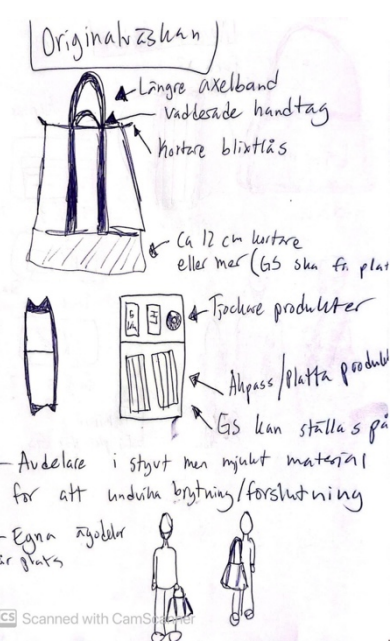 Originalväskan
Längre axelband
vadderade handtag
Kortare blixtlås
Ca 12 cm kortare
eller mer (GS ska fr. plat
Tjockare produkter
/platta produk
GS kan ställas på
- Avdelare i styvt men mjukt material
för att undvika brytning/förslutning
- Egna ägodelar
år plats
CS Scanned with CamScanner